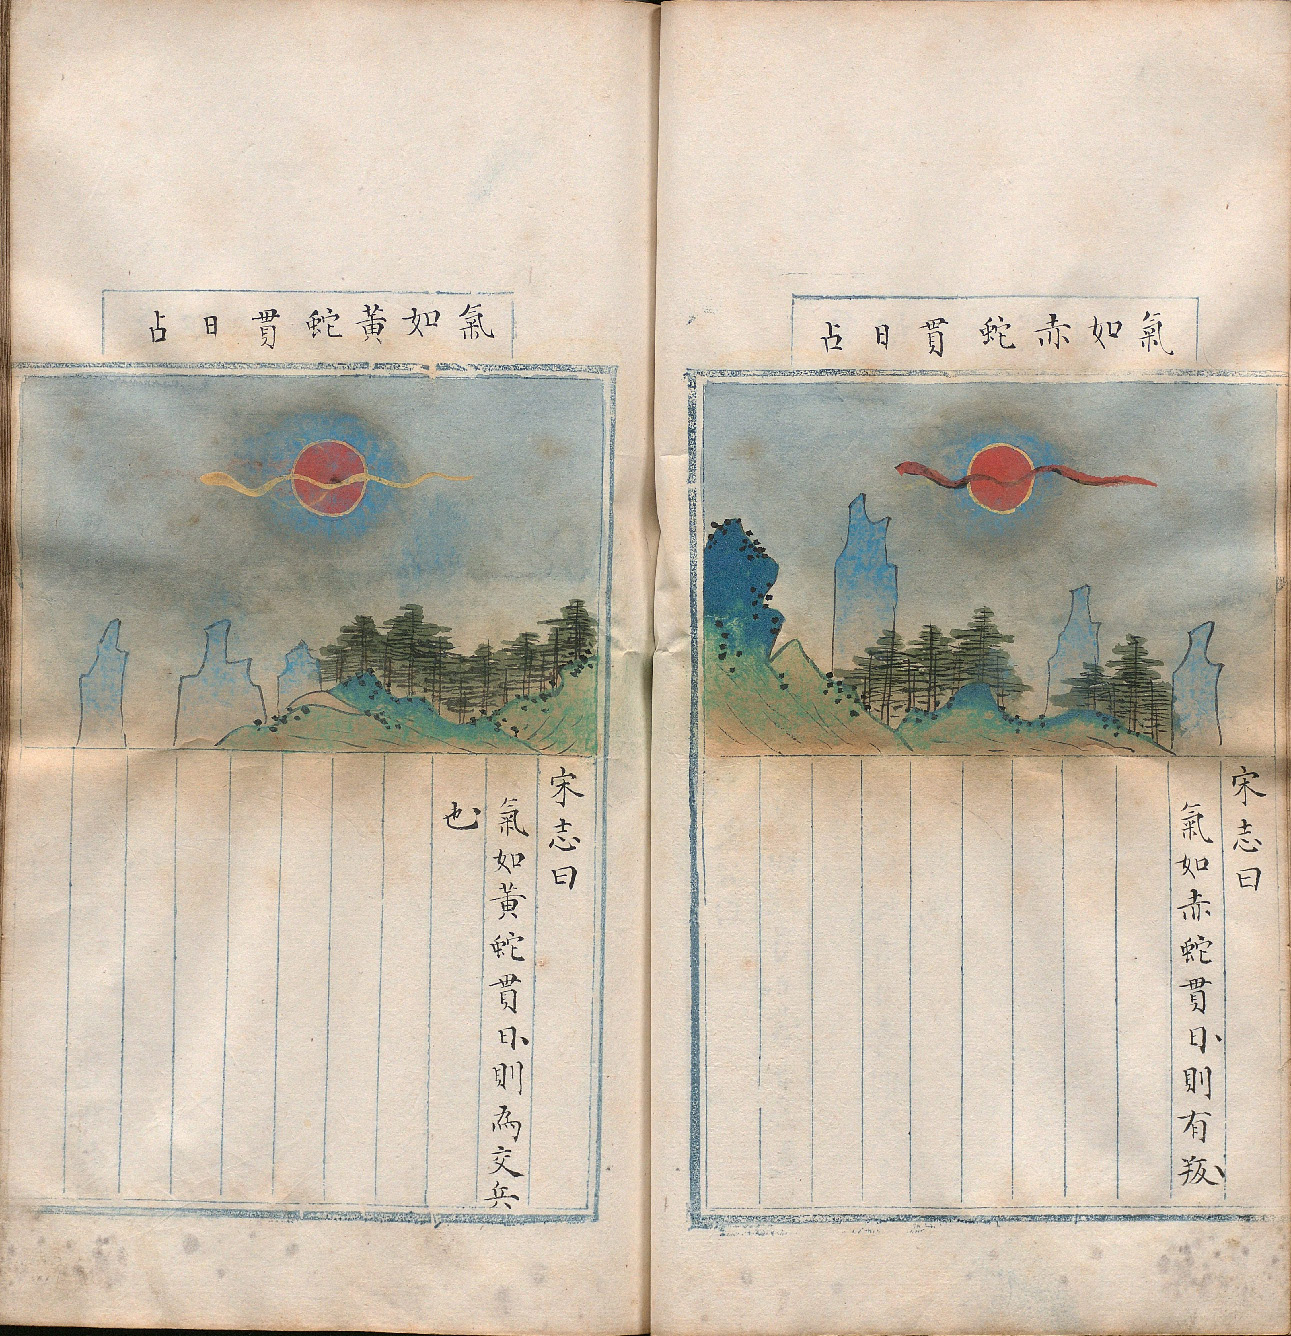 氣如赤蛇貫日占
宋志曰
氣如赤蛇貫日則有叛
氣如黃蛇貫日占
宋志曰
氣如黃蛇貫日則為交兵
也